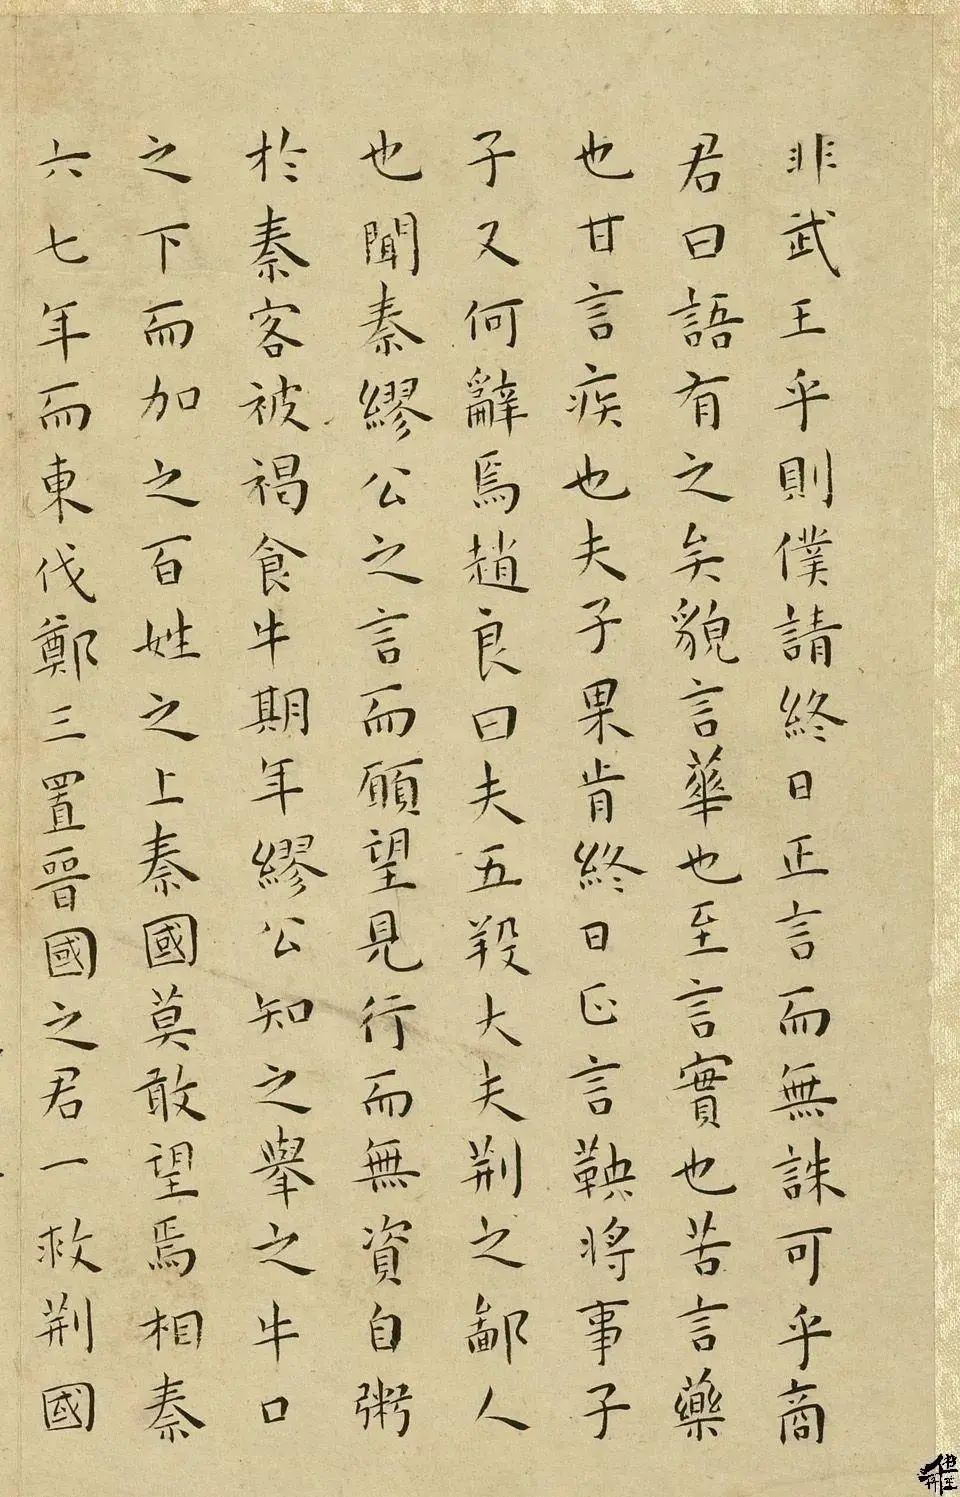 非武王乎則僕請終日正言而無誅可乎商
君曰語有之矣貌言華也至言實也苦言藥
也甘言疾也夫子果肯終日正言鞅將事子
子又何辭焉趙良曰夫五羖大夫荆之鄙人
也聞秦繆公之言而願望見行而無資自粥
於秦客被褐食牛期年繆公知之舉之牛口
之下而加之百姓之上秦國莫敢望焉相秦
六七年而東伐鄭三置晉國之君一救荆國